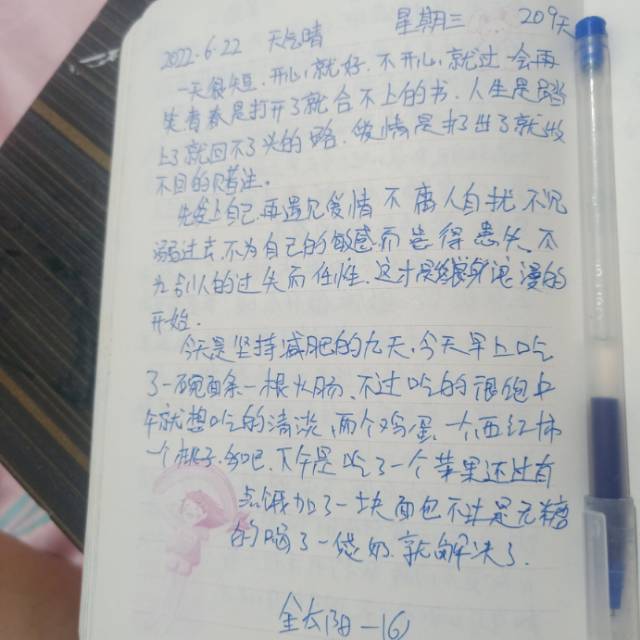 2022.6.22 天气晴 星期三 209天
一天很短,开心就好,不开心就过会再
笑青春是打开了就合不上的书,人生是踏
上了就回不了头的路,爱情是扔出了就收
不回的赌注。
先爱上自己,再遇见爱情 不庸人自扰 不沉
溺过去,不为自己的敏感而患得患失,不
为别人的过失而任性,这才是浪漫的
开始。
今天是坚持减肥的九天,今天早上吃
了一碗面条一根火肠,不过吃的很饱中
午就想吃的清淡,两个鸡蛋,一个西红柿
一个桃子,吧,下午是吃了一个苹果还是有
点饿加了一块面包不过是无糖
的喝了一袋奶,就解决了.
全太阳-16